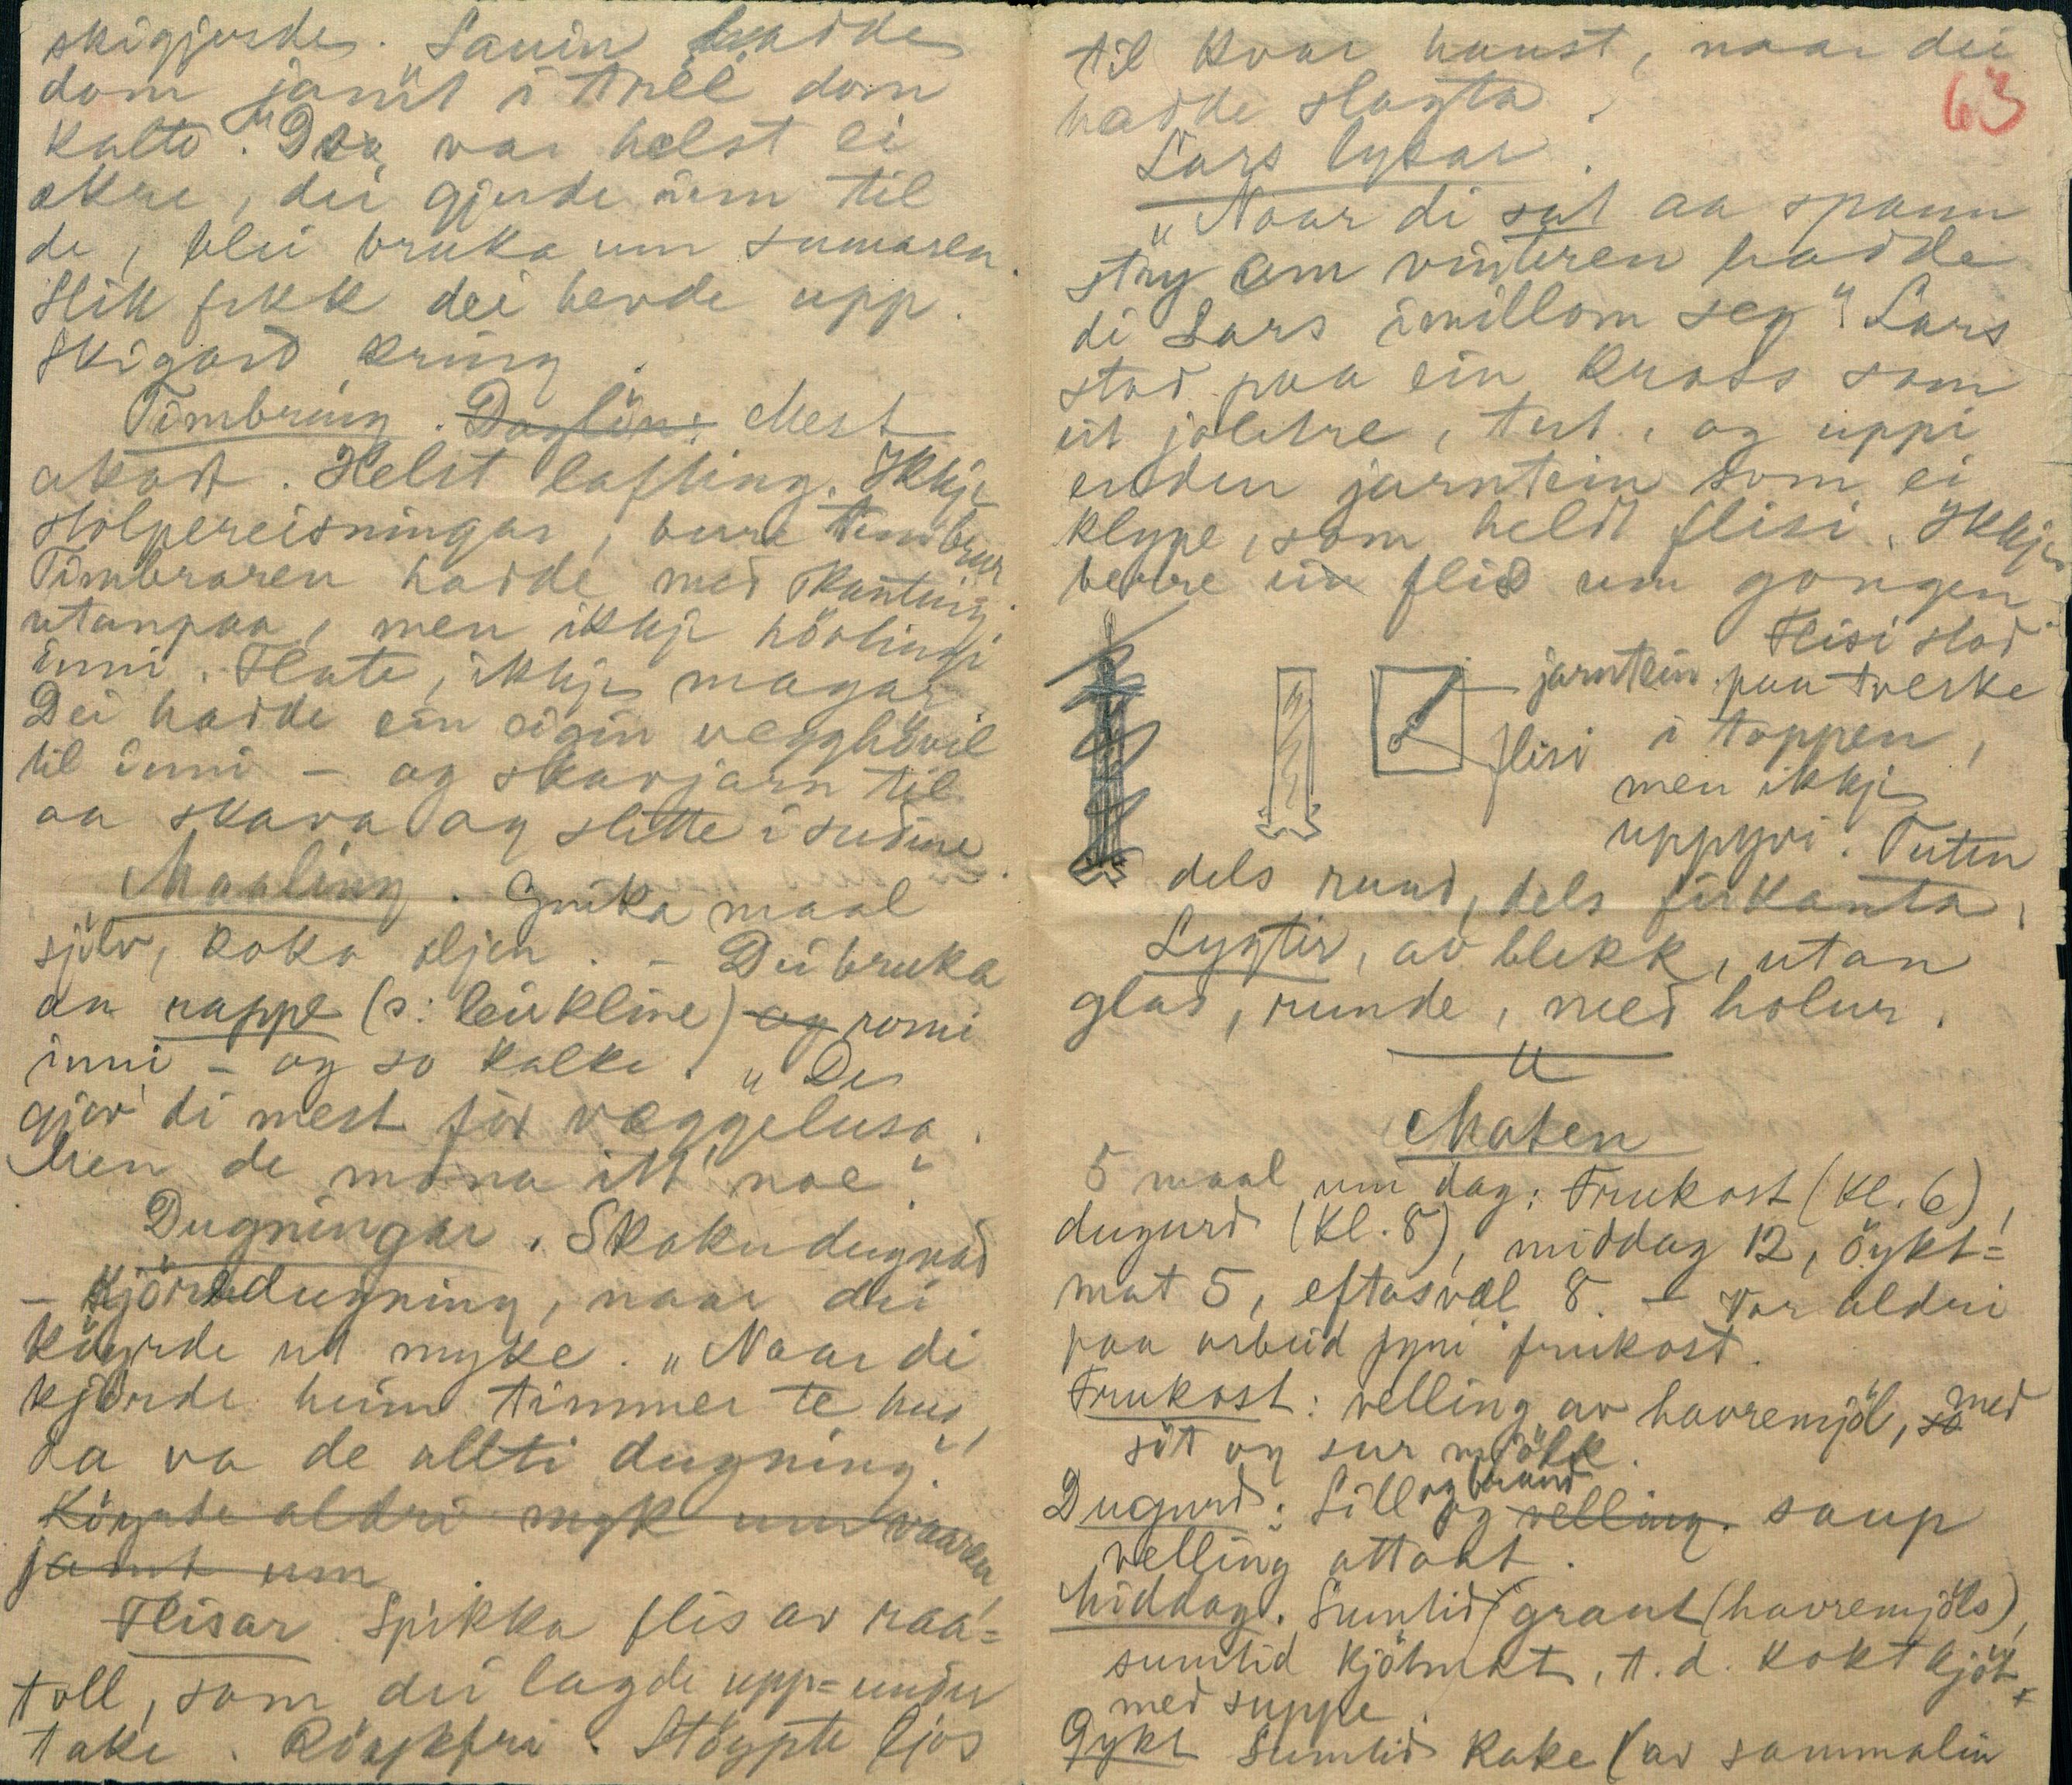 skigjerde. Sauin hadde
dom jamt i trøe dom
kalte. "Dea var helst ei
ekre, dei gjerde inn til
de, blei bruka um sumaren.
Slik fekk dei hevde upp.
Skigard kring.
Timbring. Daglön: Mest
akort. Helst lafting. Ikkje
stolpereisningar, bere timbrur
Timbraren hadde med skanting
utanpaa, men ikkje hövlingi
inni. Flate, ikkje magar.
Dei hadde ein eigin vegghövil
til inni – og skavjarn til
aa skava og slitte i sudine.
Maaling. Gnika maal
sjölv, koka oljen. – Dei bruka
aa rappe (ɔ: leirkline) og romi
inni – og so kalke. „De
gjor di mest för væggelusa.
Men de mona itt noe".
Dugningar. Skokudugnad
– Kjöredugning, naar dei
köyrde ut myke. „Naar di
kjörde heim timmer te hus,
da va de allti dugning".
Köyrde aldri myk um vaaren,
jamt um
Flisar. Spikka flis av raa=
toll, som dei lagde upp=under
take. Röykfri. Stöypte ljos
til kvar haust, naar dei
hadde slagta.
63
Lars lysar.
„Naar di sat aa spann
stry om vinteren hadde
di Lars imillom seg". Lars
stod paa ein kross som
eit joletre, tut, og uppi
enden jarntein som ei
klype, som heldt flisi. Ikkje
berre ein flis um gongen.
Flisi stod
jarntein paa tverke
flisi i toppen,
men ikkje
uppyvi. Tuten
dels rund, dels firkanta.
Lygtir, av blekk, utan
glas, runde, med holur.
Maten
5 maal um dag: Frukost (kl. 6),
dugurd (kl. 8), middag 12, öykt=
mat 5, eftasvæl 8. – Var aldri
paa arbeid fyri frukost.
Frukost: velling av havremjöl, so med
söt og sur mjölk.
Dugurd: Sill og braud og velling. saup
velling attaat.
Middag. Sumtid graut (havremjöls),
sumtid kjötmat, t.d. kokt kjöt
med suppe.
Öykt Sumtid kake (av sammalin